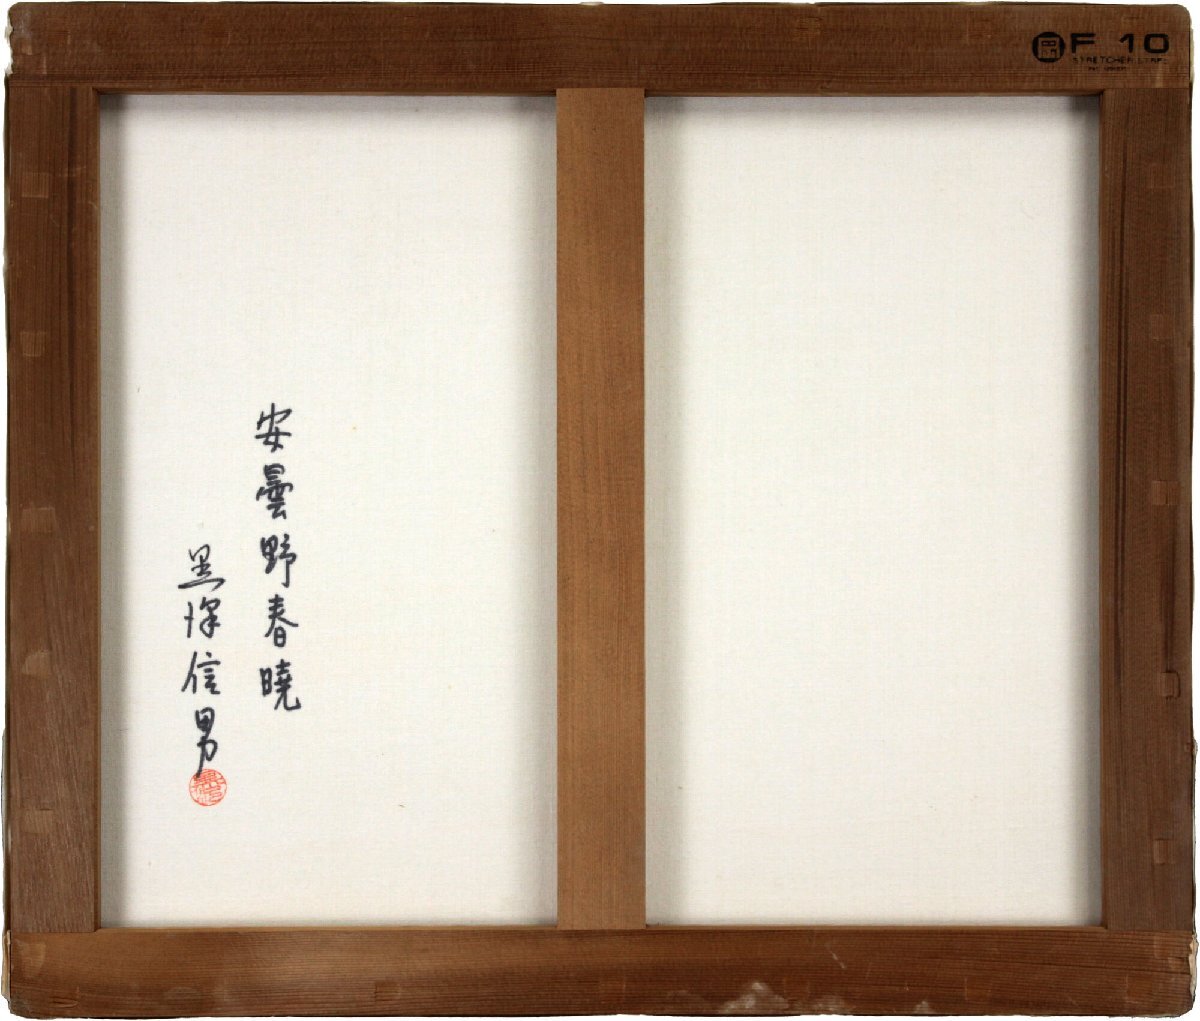 F 10
STRETCHER STRPE
安曇野春暁
黒沢信男